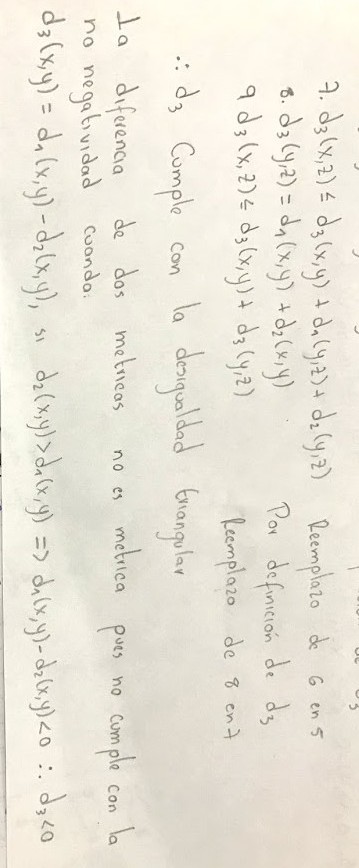 7. d₃(x,z) ≤ d₃(x,y) + d₁(y,z) + d₂(y,z) Reemplazo de 6 en 5
8. d₃(y,z) = d₁(x,y) + d₂(x,y) Por definición de d₃
9 d₃(x,z) ≤ d₃(x,y) + d₃(y,z) Reemplazo de 8 en 7
∴ d₃ Cumple con la desigualdad triangular
La diferencia de dos metricas no es metrica pues no cumple con la
no negatividad cuando:
d₃(x,y) = d₁(x,y) - d₂(x,y), si d₂(x,y) > d₁(x,y) => d₁(x,y) - d₂(x,y) < 0 ∴ d₃ < 0